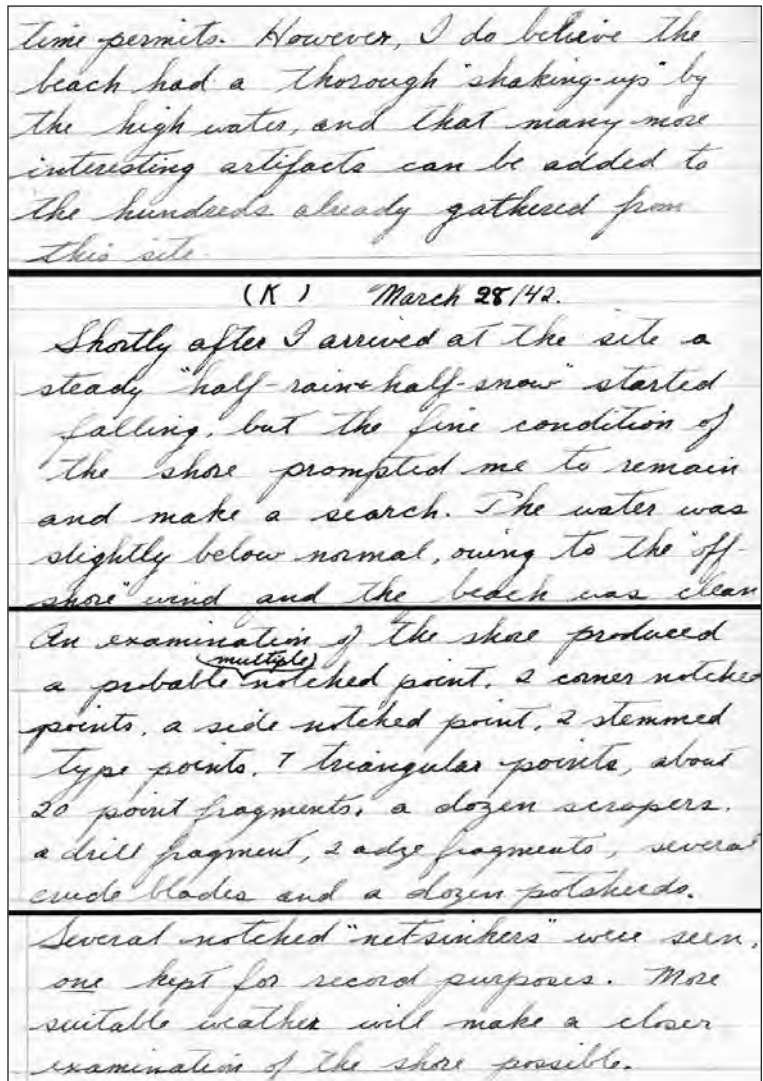 time permits. However, I do believe the
beach had a thorough "shaking-up" by
the high water, and that many more
interesting artifacts can be added to
the hundreds already gathered from
this site.
(K) March 28/42.
Shortly after I arrived at the site a
steady "half-rain & half-snow" started
falling, but the fine condition of
the shore prompted me to remain
and make a search. The water was
slightly below normal, owing to the "off-
shore" wind and the beach was clean
An examination of the shore produced
(multiple)
a probable notched point, 2 corner notched
points, a side notched point, 2 stemmed
type points, 7 triangular points, about
20 point fragments, a dozen scrapers,
a drill fragment, 2 adze fragments, several
crude blades and a dozen potsherds.
Several notched "net-sinkers" were seen,
one kept for record purposes. More
suitable weather will make a closer
examination of the shore possible.